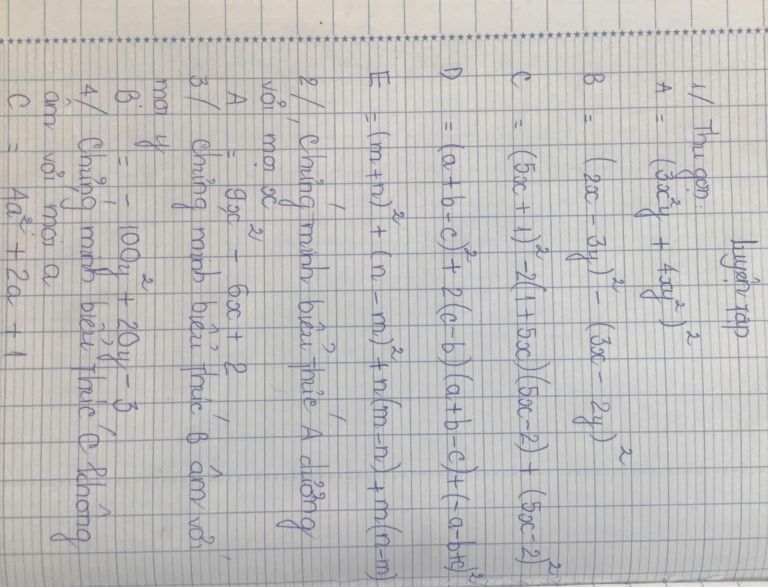 Luyện tập
1/ Thu gọn:
A = (3x²y + 4xy²)²
B = (2x - 3y)² - (3x - 2y)²
C = (5x + 1)² - 2(1 + 5x)(5x - 2) + (5x - 2)²
D = (a + b - c)² + 2(c - b)(a + b - c) + (-a - b + c)²
E = (m + n)² + (n - m)² + n(m - n) + m(n - m)
2/ Chứng minh biểu thức A dương
với mọi x
A = 9x² - 6x + 2
3/ Chứng minh biểu thức B âm với
mọi y
B = - 100y² + 20y - 3
4/ Chứng minh biểu thức C không
âm với mọi a
C = 4a² + 2a + 1